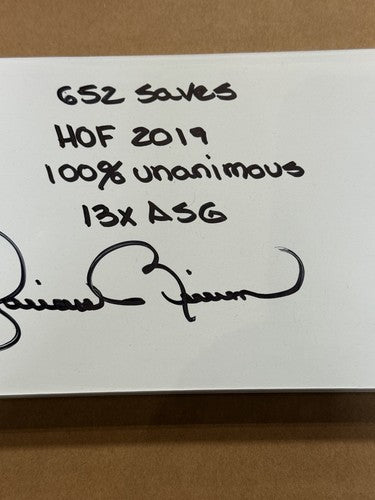 652 saves
HOF 2019
100% unanimous
13x ASG
Mariano Rivera